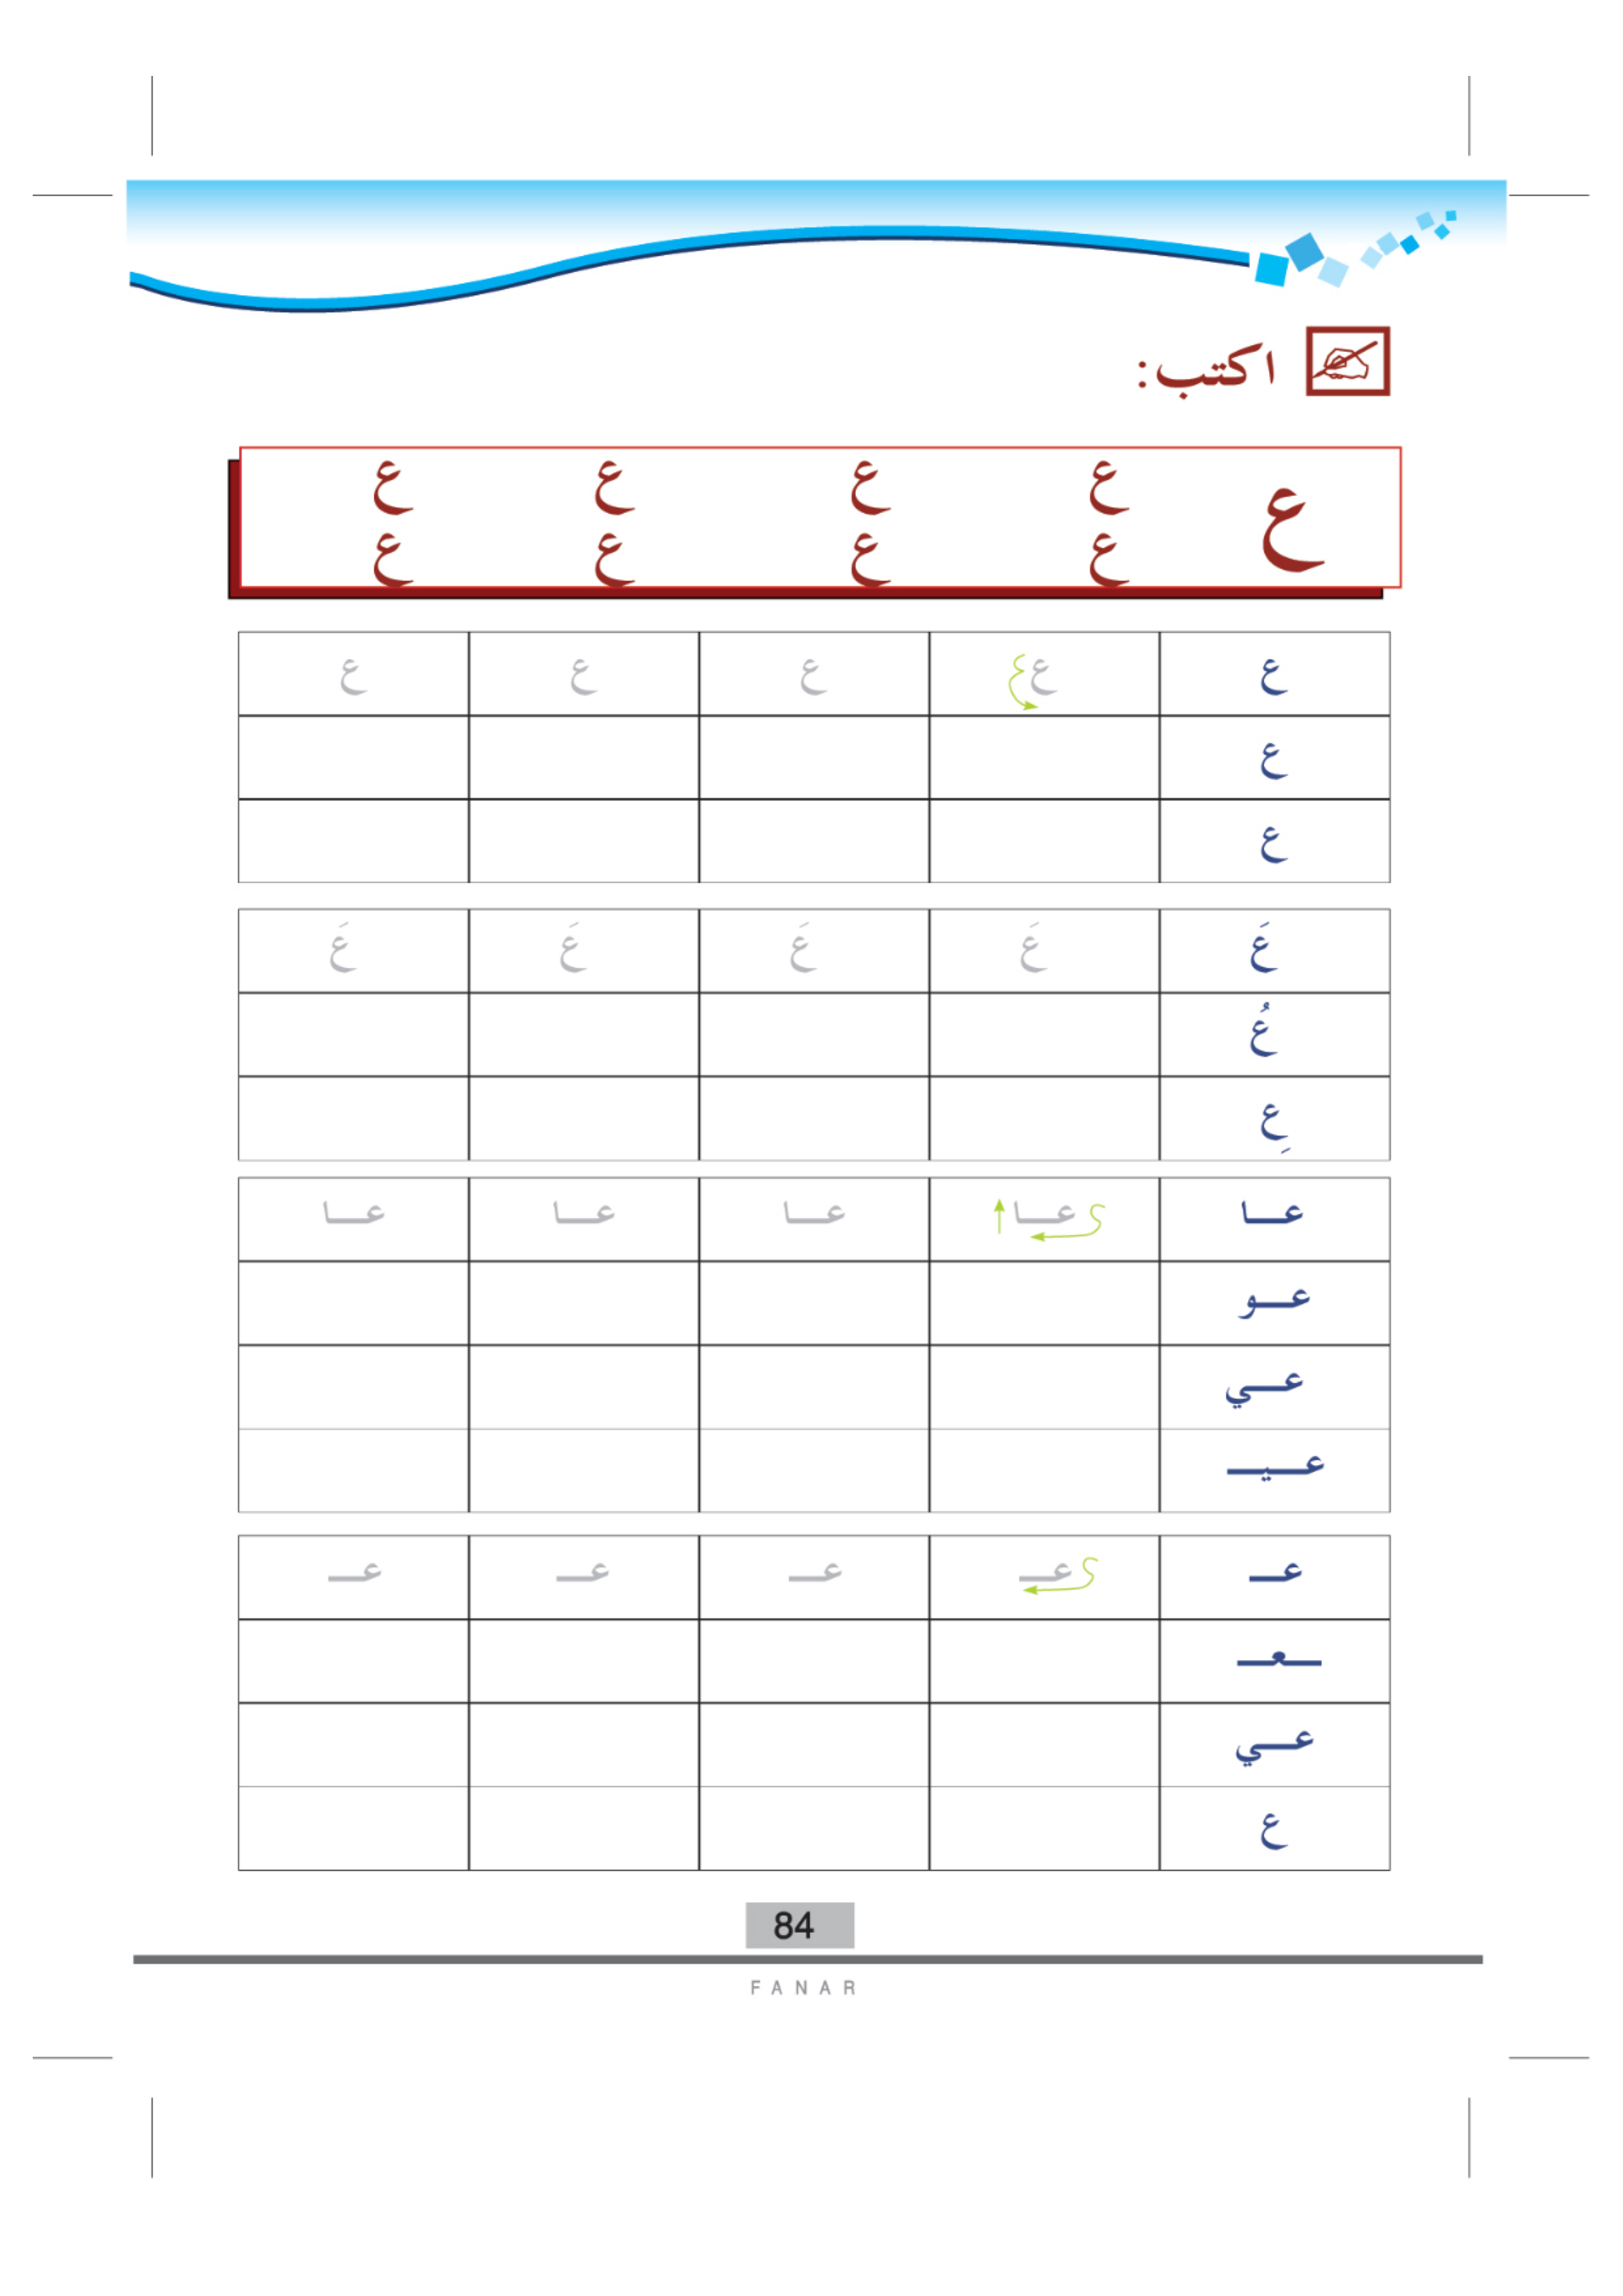 اكتب:
ع ع ع ع ع
ع ع ع ع
ع ع ع ع ع
ع
ع
عَ عَ عَ عَ عَ
عُ
عِ
عــا عــا عــا عــا عــا
عــو
عــي
عــيــ
عــ عــ عــ عــ عــ
ــعــ
عــي
ع
84
FANAR